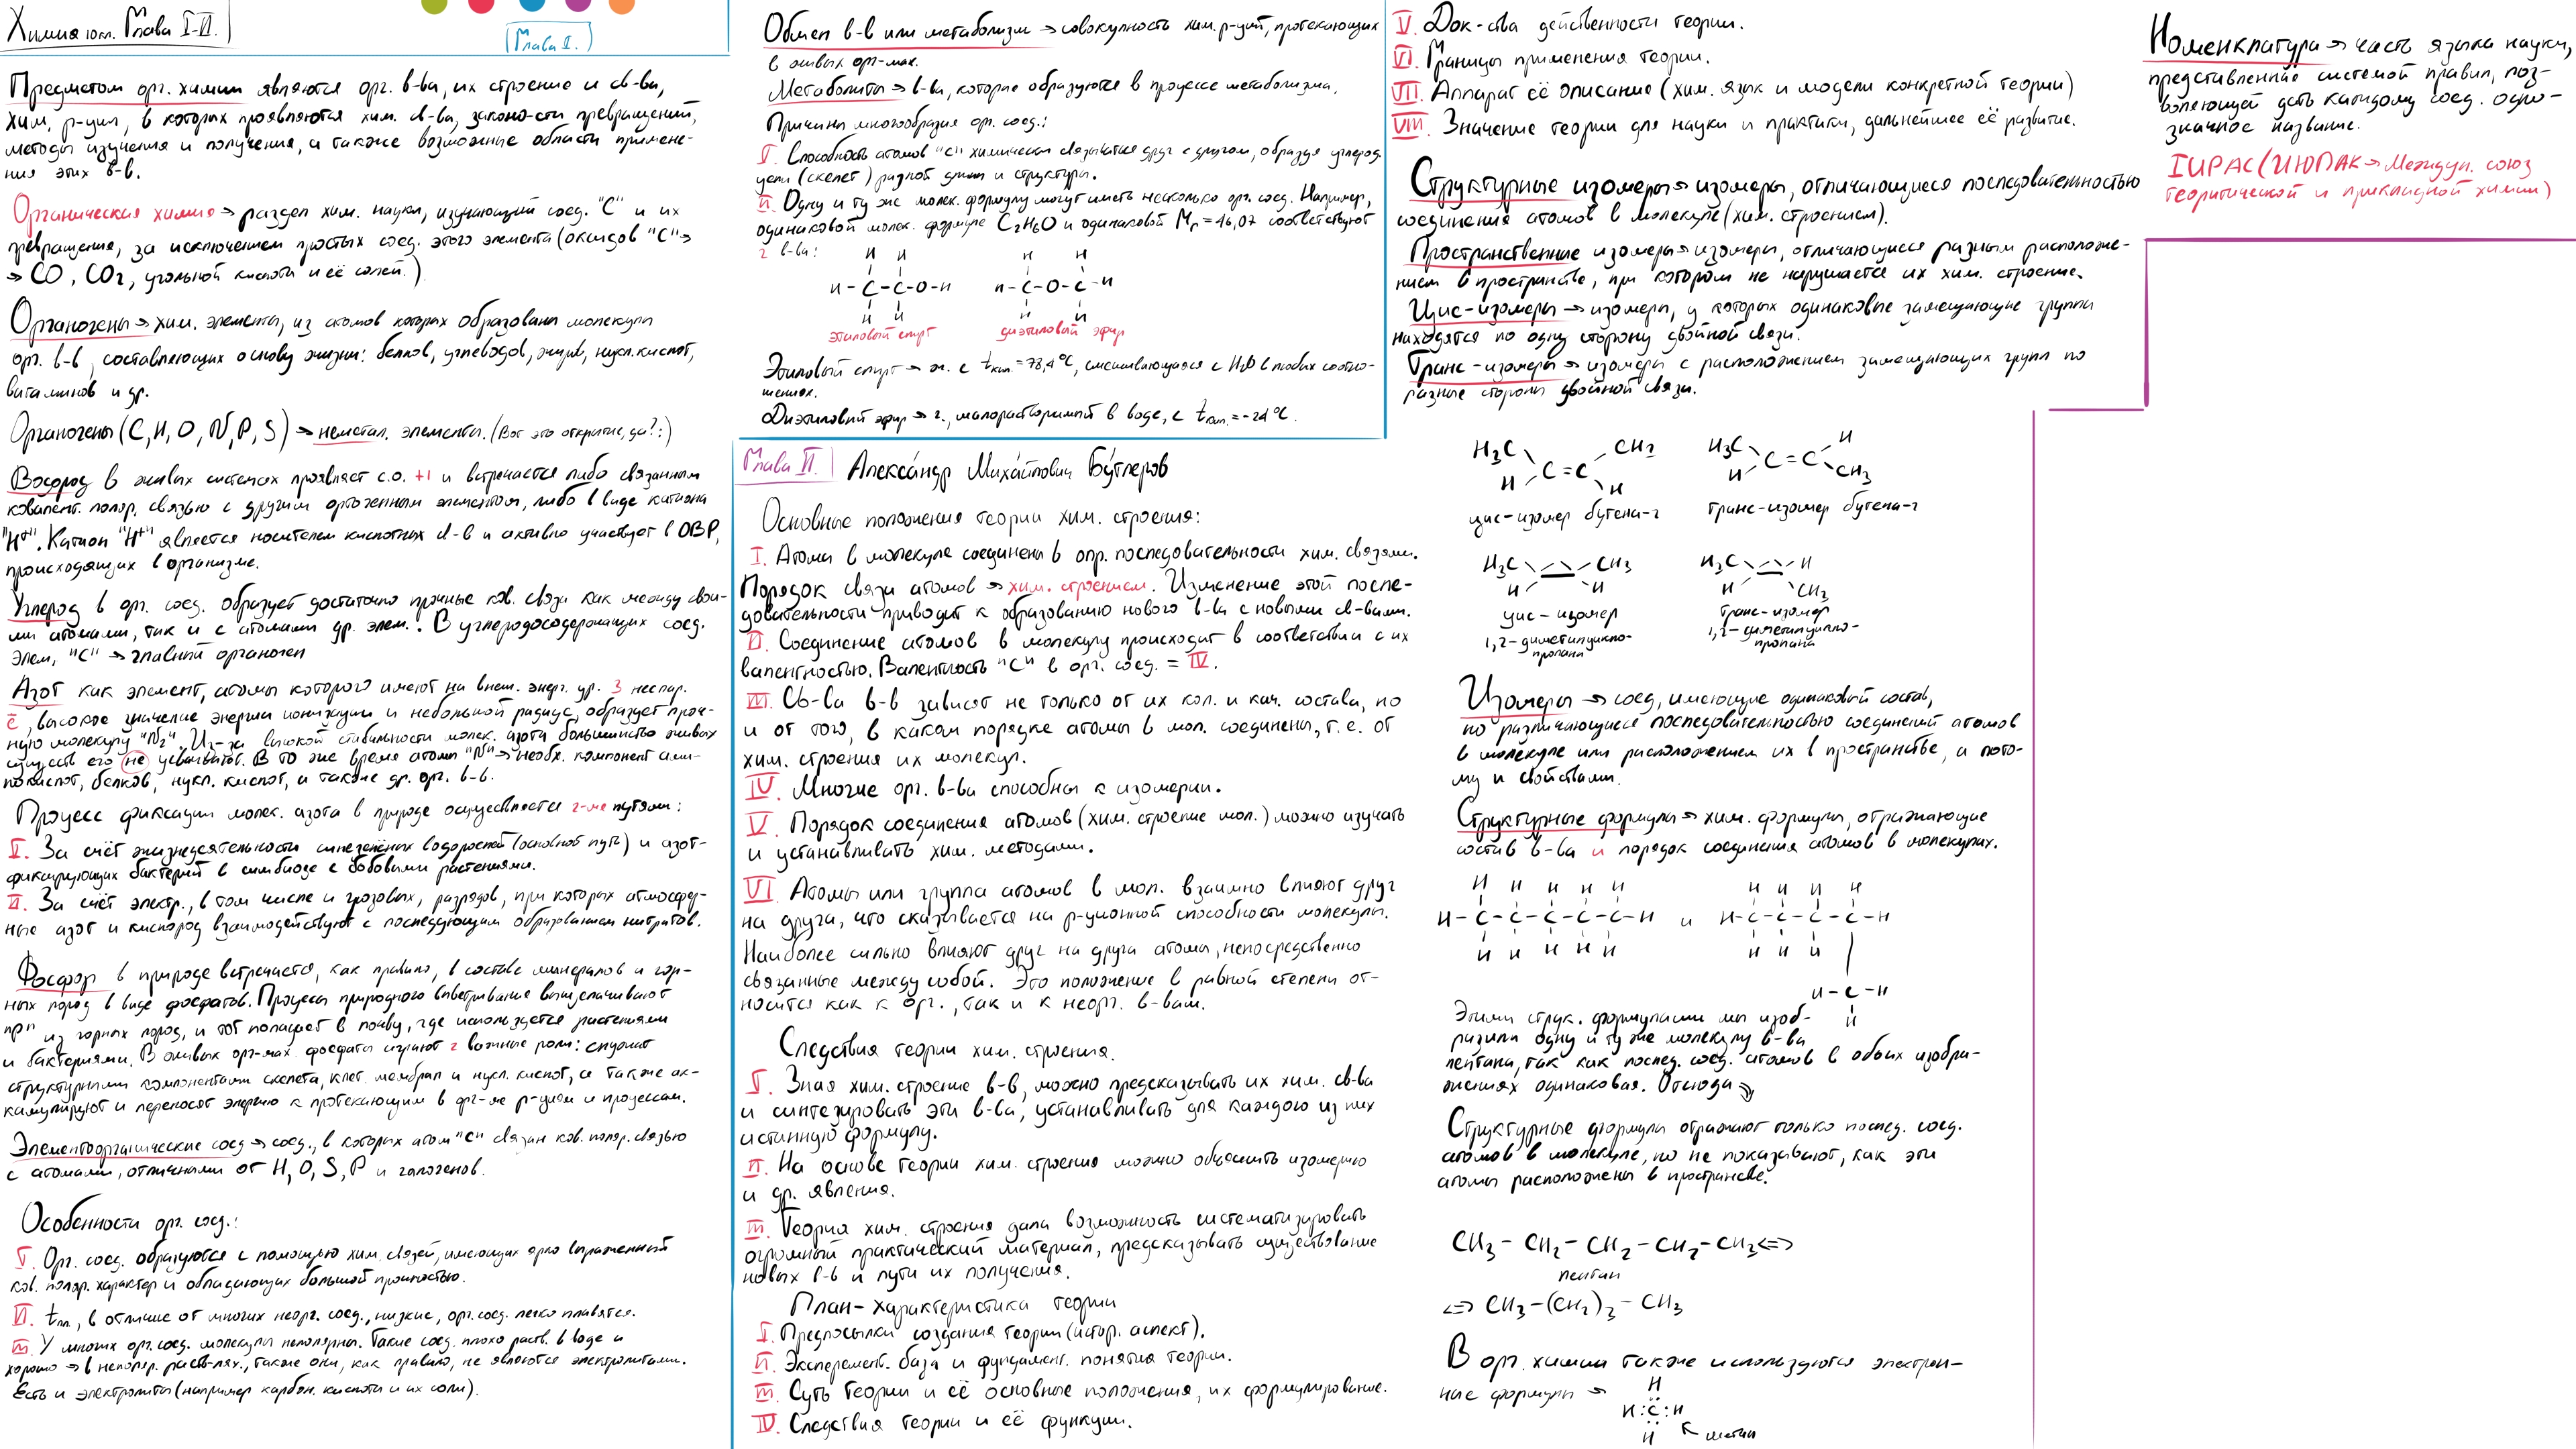 Химия 10кл. Глава I-II.
Глава I.
Предметом орг. химии являются орг. в-ва, их строение и св-ва,
хим. р-ции, в которых проявляются хим. св-ва, законо-сти превращений,
методы изучения и получения, а также возможные области примене-
ния этих в-в.
Органическая химия → раздел хим. науки, изучающий соед. "C" и их
превращения, за исключением простых соед. этого элемента (оксидов "C" →
→ CO, CO2, угольной кислоты и её солей.)
Органогены → хим. элементы, из атомов которых образованы молекулы
орг. в-в, составляющих основу жизни: белков, углеводов, жиров, нукл. кислот,
витаминов и др.
Органогены (C, H, O, N, P, S) → неметал. элементы. (Вот это открытие, да? :)
Водород в живых системах проявляет с.о. +1 и встречается либо связанным
ковалент. поляр. связью с другим органогенным элементом, либо в виде катиона
"H+". Катион "H+" является носителем кислотных св-в и активно участвует в ОВР,
происходящих в организме.
Углерод в орг. соед. образует достаточно прочные ков. связи как между свои-
ми атомами, так и с атомами др. элем.. В углеродосодержащих соед.
элем. "C" → главный органоген
Азот как элемент, атомы которого имеют на внеш. энерг. ур. 3 неспар.
ē, высокое значение энергии ионизации и небольшой радиус, образует проч-
ную молекулу "N2". Из-за высокой стабильности молек. азота большинство живых
существ его не усваивают. В то же время атомы "N" → необх. компонент ами-
нокислот, белков, нукл. кислот, а также др. орг. в-в.
Процесс фиксации молек. азота в природе осуществляется 2-мя путями:
I. За счёт жизнедеятельности синезелёных водорослей (основной путь) и азот-
фиксирующих бактерий в симбиозе с бобовыми растениями.
II. За счёт электр., в том числе и грозовых, разрядов, при которых атмосфер-
ные азот и кислород взаимодействуют с последующим образованием нитратов.
Фосфор в природе встречается, как правило, в составе минералов и гор-
ных пород в виде фосфатов. Процессы природного выветривания выщелачивают
"P" из горных пород, и тот попадает в почву, где используется растениями
и бактериями. В живых орг-мах фосфаты играют 2 важные роли: служат
структурными компонентами скелета, клет. мембран и нукл. кислот, а также ак-
кумулируют и переносят энергию к протекающим в орг-ме р-циям и процессам.
Элементоорганические соед → соед., в которых атом "C" связан ков. поляр. связью
с атомами, отличными от H, O, S, P и галогенов.
Особенности орг. соед.:
I. Орг. соед. образуются с помощью хим. связей, имеющих ярко выраженный
ков. поляр. характер и обладающих большой прочностью.
II. tпл., в отличие от многих неорг. соед., низкие, орг. соед. легко плавятся.
III. У многих орг. соед. молекулы неполярны. Такие соед. плохо раств. в воде и
хорошо → в неполяр. раств-лях., также они, как правило, не являются электролитами.
Есть и электролиты (например карбон. кислоты и их соли).
Обмен в-в или метаболизм → совокупность хим. р-ций, протекающих
в живых орг-мах.
Метаболиты → в-ва, которые образуются в процессе метаболизма.
Причины многообразия орг. соед.:
I. Способность атомов "C" химически связываться друг с другом, образуя углерод.
цепи (скелет) разной длины и структуры.
II. Одну и ту же молек. формулу могут иметь несколько орг. соед. Например,
одинаковой молек. формуле C2H6O и одинаковой Mr = 46,07 соответствуют
2 в-ва:
H H H H
H - C - C - O - H H - C - O - C - H
H H H H
этиловый спирт диэтиловый эфир
Этиловый спирт → ж. с tкип. = 78,4°C, смешивающаяся с H2O в любых соотно-
шениях.
Диэтиловый эфир → г., малорастворимый в воде, с tкип. = -24°C.
Глава II. Алекса́ндр Миха́йлович Бу́тлеров
Основные положения теории хим. строения:
I. Атомы в молекуле соединены в опр. последовательности хим. связями.
Порядок связи атомов → хим. строением. Изменение этой после-
довательности приводит к образованию нового в-ва с новыми св-вами.
II. Соединение атомов в молекулу происходит в соответствии с их
валентностью. Валентность "C" в орг. соед. = IV.
III. Св-ва в-в зависят не только от их кол. и кач. состава, но
и от того, в каком порядке атомы в мол. соединены, т.е. от
хим. строения их молекул.
IV. Многие орг. в-ва способны к изомерии.
V. Порядок соединения атомов (хим. строение мол.) можно изучать
и устанавливать хим. методами.
VI. Атомы или группа атомов в мол. взаимно влияют друг
на друга, что сказывается на р-ционной способности молекулы.
Наиболее сильно влияют друг на друга атомы, непосредственно
связанные между собой. Это положение в равной степени от-
носится как к орг., так и к неорг. в-вам.
Следствия теории хим. строения.
I. Зная хим. строение в-в, можно предсказывать их хим. св-ва
и синтезировать эти в-ва, устанавливать для каждого из них
истинную формулу.
II. На основе теории хим. строения можно объяснить изомерию
и др. явления.
III. Теория хим. строения дала возможность систематизировать
огромный практический материал, предсказывать существование
новых в-в и пути их получения.
План-характеристика теории
I. Предпосылки создания теории (истор. аспект).
II. Эксперемент. база и фундамент. понятия теории.
III. Суть теории и её основные положения, их формулирование.
IV. Следствия теории и её функции.
V. Док-ства действенности теории.
VI. Границы применения теории.
VII. Аппарат её описание (хим. язык и модели конкретной теории)
VIII. Значение теории для науки и практики, дальнейшее её развитие.
Структурные изомеры → изомеры, отличающиеся последовательностью
соединения атомов в молекуле (хим. строением).
Пространственные изомеры → изомеры, отличающиеся разным расположе-
нием в пространстве, при котором не нарушается их хим. строение.
Цис-изомеры → изомеры, у которых одинаковые замещающие группы
находятся по одну сторону двойной связи.
Транс-изомеры → изомеры с расположением замещающих групп по
разные стороны двойной связи.
H3C CH3 H3C H
C=C C=C
H H H CH3
цис-изомер бутена-2 транс-изомер бутена-2
H3C CH3 H3C H
H H H CH3
цис-изомер транс-изомер
1,2-диметилцикло- 1,2-диметилцикло-
пропана пропана
Изомеры → соед., имеющие одинаковый состав,
но различающиеся последовательностью соединений атомов
в молекуле или расположением их в пространстве, а пото-
му и свойствами.
Структурные формулы → хим. формулы, отражающие
состав в-ва и порядок соединения атомов в молекулах.
H H H H H H H H H
H - C - C - C - C - C - H и H - C - C - C - C - H
H H H H H H H H
H - C - H
H
Этими струк. формулами мы изоб-
разили одну и ту же молекулу в-ва
пентана, так как послед. соед. атомов в обоих изобра-
жениях одинаковая. Отсюда ⇒
Структурные формулы отражают только послед. соед.
атомов в молекуле, но не показывают, как эти
атомы расположены в пространстве.
CH3 - CH2 - CH2 - CH2 - CH3 <=>
пентан
<=> CH3 - (CH2)3 - CH3
В орг. химии также используются электрон-
ные формулы →
H
H : C : H
H
метан
Номенклатура → часть языка науки,
представленная системой правил, поз-
воляющей дать каждому соед. одно-
значное название.
IUPAC (ИЮПАК → Междун. союз
теоритической и прикладной химии)